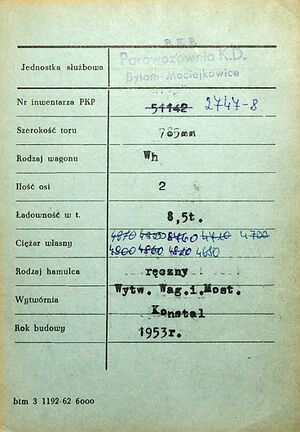 P.K.P.
Jednostka służbowa Parowozownia K.D.
Bytom-Maciejkowice
Nr inwentarza PKP 51142 2747-8
Szerokość toru 785mm
Rodzaj wagonu Wh
Ilość osi 2
Ładowność w t. 8,5t.
4700
Ciężar własny
4650
Rodzaj hamulca ręczny
Wytw. Wag.i.Most.
Wytwórnia Konstal
Rok budowy 1953r.
btm 3 1192-62 6000